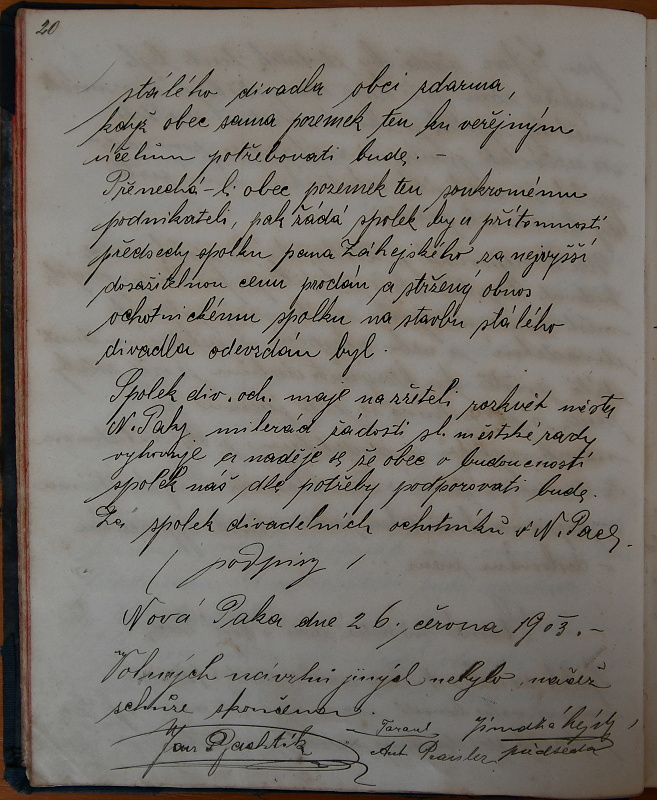 20
stálého divadla obci zdarma,
když obec sama pozemek ten ku veřejným
účelům potřebovati bude. –
Přenechá-li obec pozemek ten soukromému
podnikateli, pak žádá spolek by u přítomnosti
předsedy spolku pana Záhejského za nejvyšší
dosažitelnou cenu prodán a stržený obnos
ochotnickému spolku na stavbu stálého
divadla odevzdán byl.
Spolek div. och. maje na zřeteli rozkvět města
N. Paky milerád žádosti sl. městské rady
vyhovuje a naděje se že obec v budoucnosti
spolek náš dle potřeby podporovati bude.
Za spolek divadelních ochotníků v N. Pace.
( podpisy )
Nová Paka dne 26. června 1903. –
Volných návrhů jiných nebylo, načež
schůze skončena.
Jan
Ant.
předseda